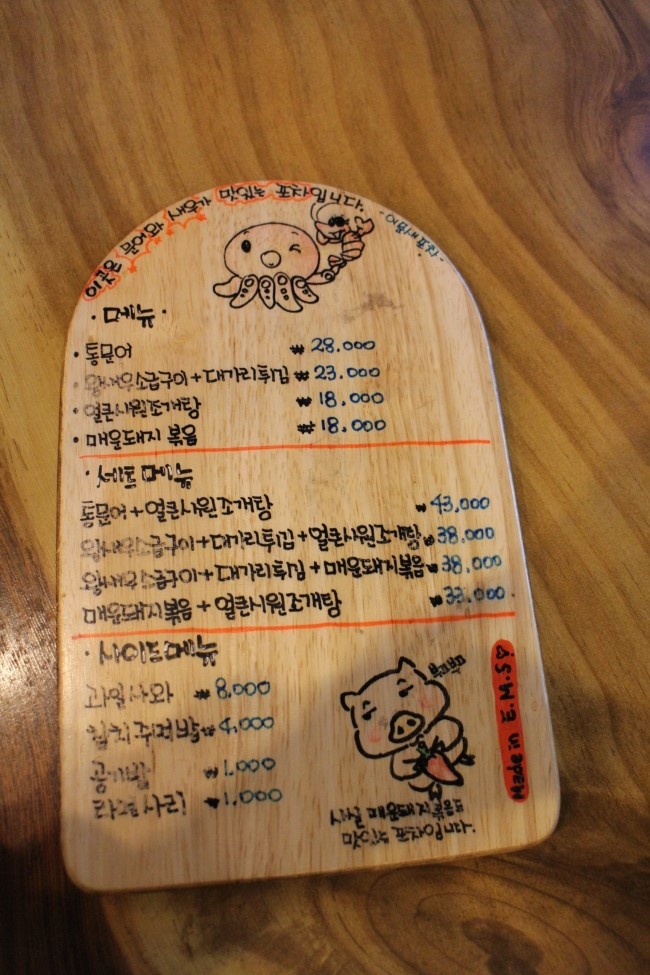 이곳은 문어와 새우가 맛있는 포차입니다.
· 메뉴 ·
· 통문어 ₩ 28.000
· 왕새우소금구이+대가리튀김 ₩ 23.000
· 얼큰시원조개탕 ₩ 18.000
· 매운돼지 볶음 ₩ 18.000
· 세트 메뉴
통문어+얼큰시원조개탕 ₩ 43,000
왕새우소금구이+대가리튀김+얼큰시원조개탕 ₩ 38,000
왕새우소금구이+대가리튀김+매운돼지볶음 ₩ 38,000
매운돼지볶음+얼큰시원조개탕 ₩ 33,000
· 사이드메뉴
과일사와 ₩ 8,000
참치주먹밥 ₩ 4,000
공기밥 ₩ 1,000
라면사리 ₩ 1,000
매콤
사실 매운돼지볶음도
맛있는 포차입니다.
Made in E.M.S♡